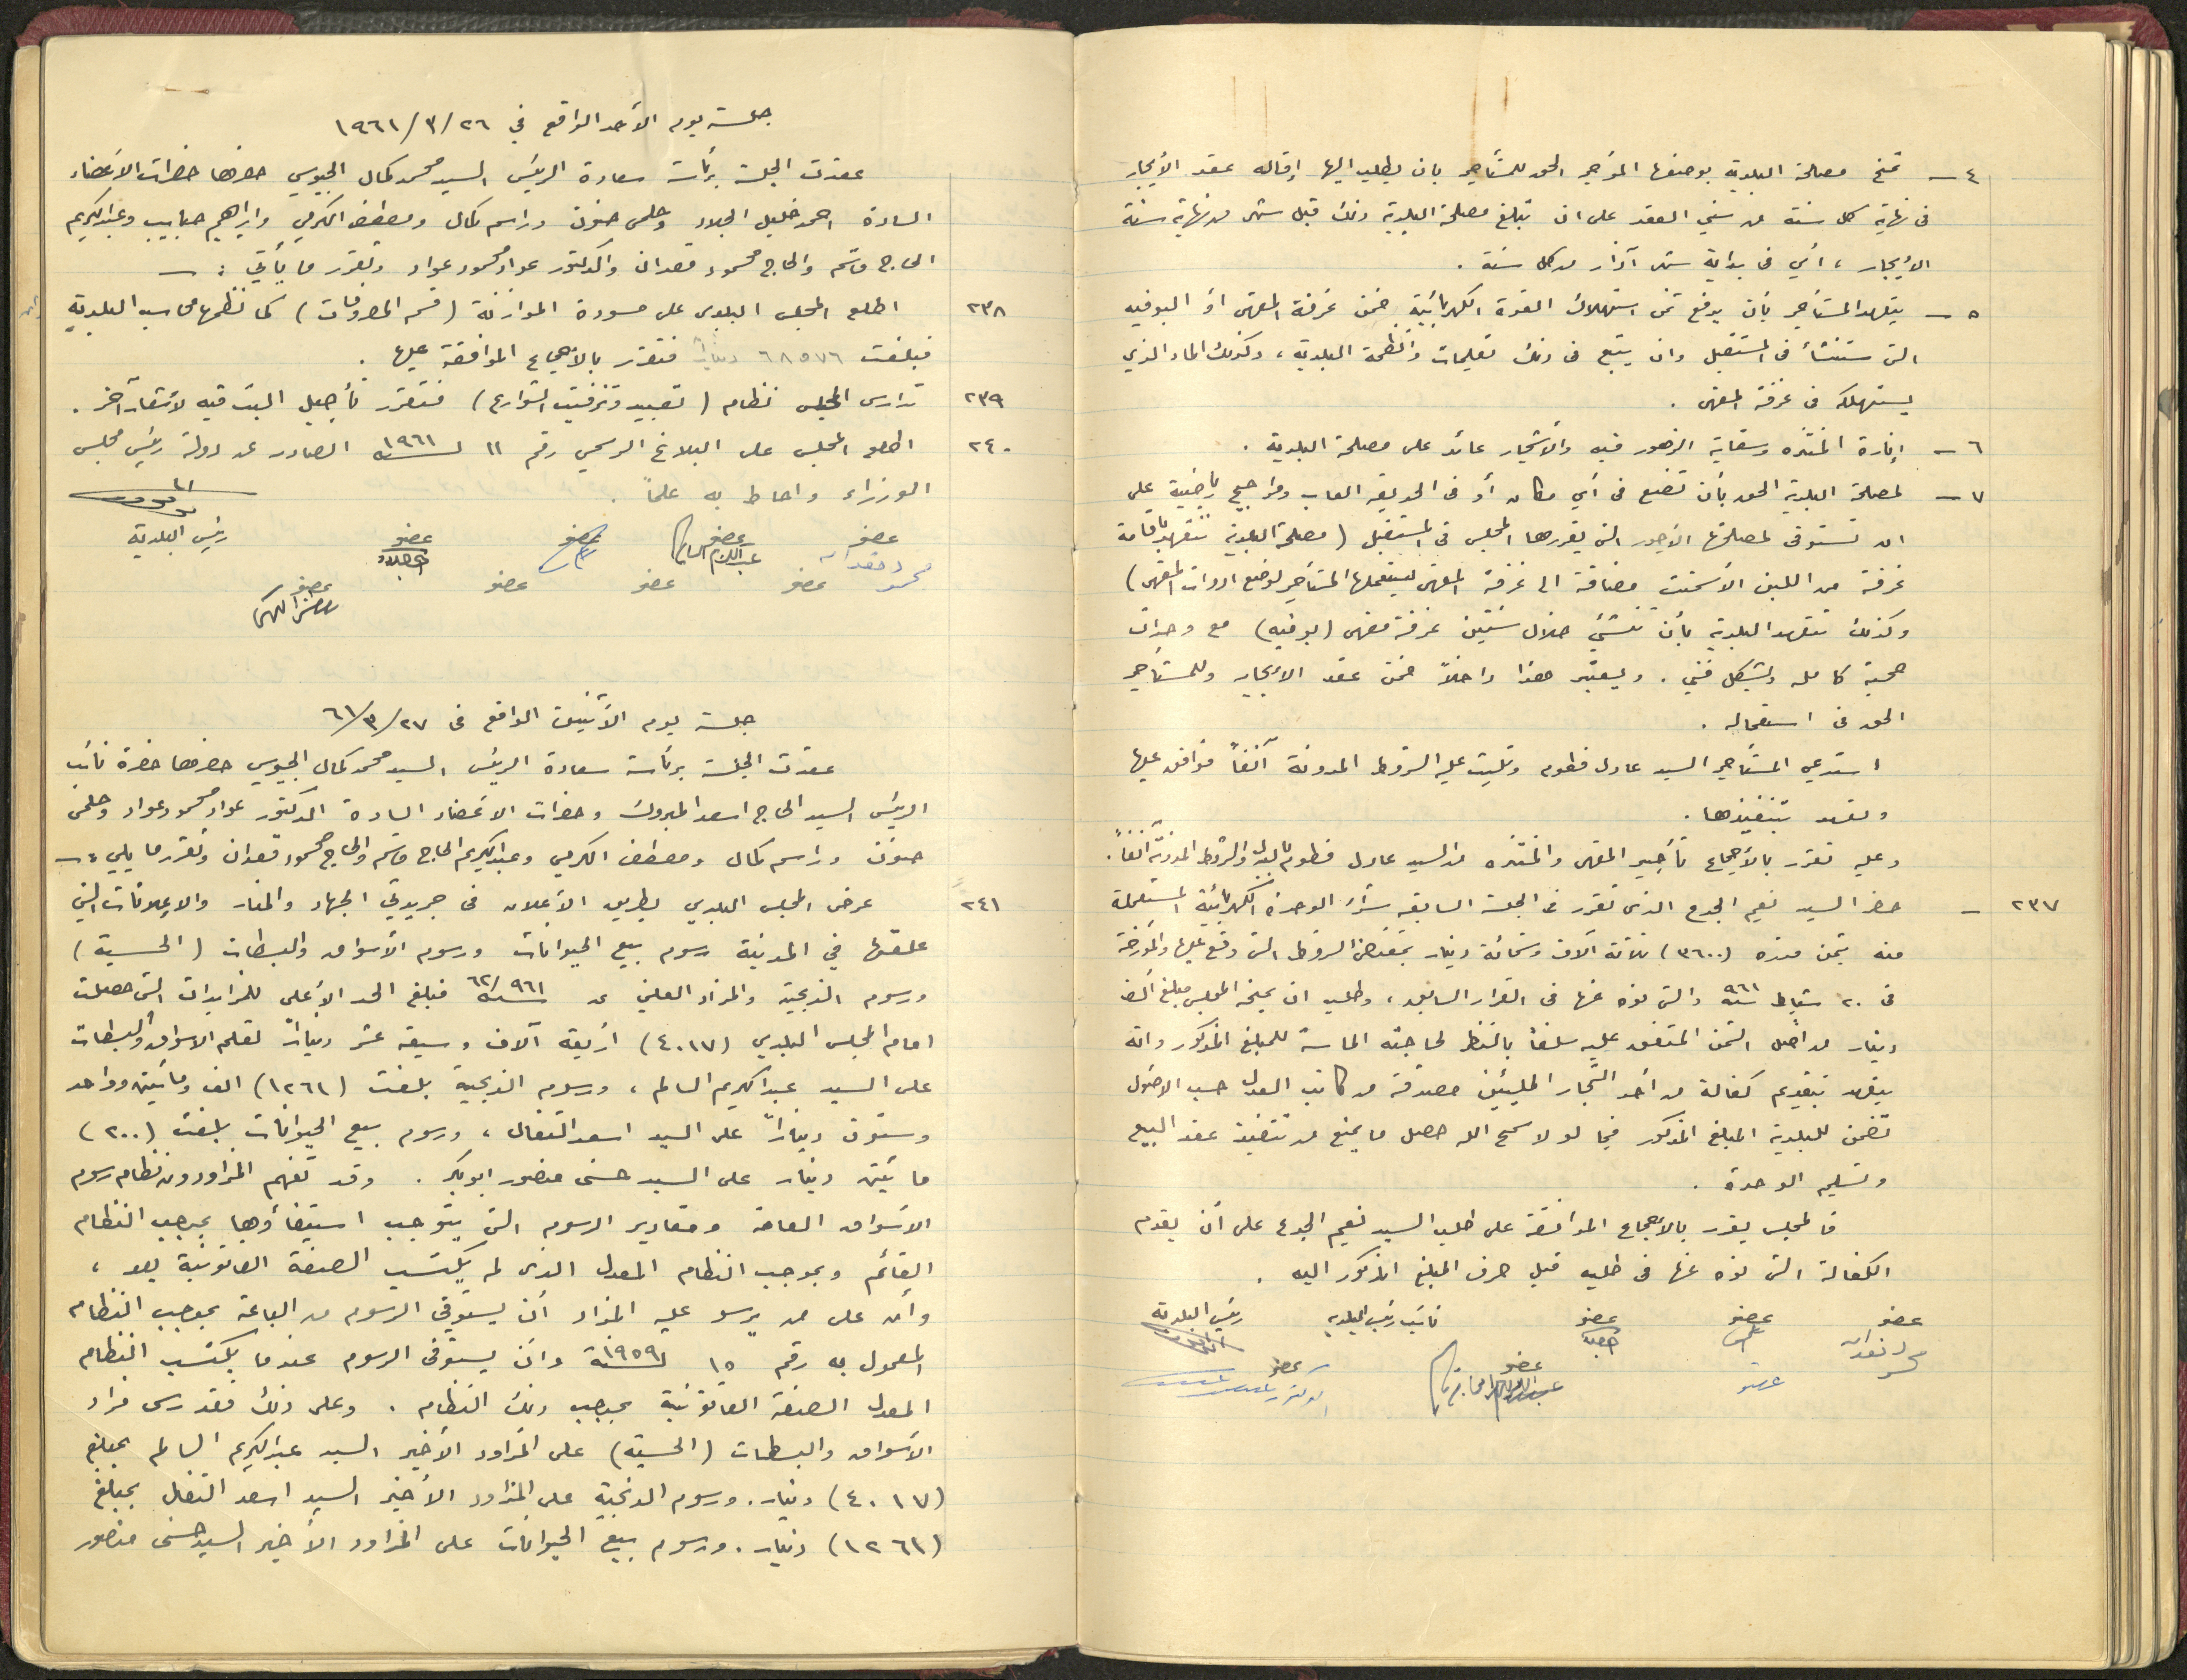 ٤ – تمنح مصلحة البلدية بوصفها المؤجر الحق للمستأجر بان يطلب اليها إقالة عقد الأيجار
في نهاية كل سنة من سني العقد على ان تبلغ مصلحة البلدية ذلك قبل شهر من نهاية سنة
الأيجار ، أي في بداية شهر آذار من كل سنة .
٥ – يتعهد المستأجر بأن يدفع ثمن استهلاك القوة الكهربائية ضمن غرفة المقهى أو البوفيه
التي ستنشأ في المستقبل وان يتبع في ذلك تعليمات وأنظمة البلدية ، وكذلك الماء الذي
يستهلكه في غرفة المقهى .
٦ – إنارة المنتزه وسقاية الزهور فيه والأشجار عائد على مصلحة البلدية .
٧ – لمصلحة البلدية الحق بأن تضع في أي مكان أو في الحديقة العاب ومراجيح رياضية على
ان تستوفى لمصلحتها الأجور التي يقررها المجلس في المستقبل ( مصلحة البلدية تتعهد باقامة
غرفة من اللبن الأسمنت مضافة الى غرفة المقهى ليستعملها المستأجر لوضع ادوات المقهى )
وكذلك تتعهد البلدية بأن تنشئ خلال سنتين غرفة مقهى ( بوفيه ) مع وحدات
صحية كاملة وبشكل فني . ويعتبر هذا داخلاً ضمن عقد الأيجار وللمستأجر
الحق في استعماله .
استدعي المستأجر السيد عادل فطوم وتليت عليه الشروط المدونة آنفاً فوافق عليها
وتعهد بتنفيذها .
وعليه تقرر بالأجماع تأجير المقهى والمنتزه من السيد عادل فطوم بالبدل والشروط المدونة آنفاً .
٢٣٧ – حضر السيد نعيم الجدع الذي تقرر في الجلسة السابقة شراء الوحدة الكهربائية المستعملة
منه بثمن قدره (٣٦٠٠) ثلاثة آلاف وستمائة دينار بمقتضى الشروط التي وقع عليها والمؤرخة
في ٢٠ شباط سنة ٩٦١ والتي نوه عنها في القرار السابق ، وطلب ان يمنحه المجلس مبلغ الف
دينار من أصل الثمن المتفق عليه سلفاً بالنظر لحاجته الماسة للمبلغ المذكور وانه
يتعهد بتقديم كفالة من أحد التجار المليئين مصدقة من كاتب العدل حسب الاصول
تضمن للبلدية المبلغ المذكور فيما لو لا سمح الله حصل ما يمنع من تنفيذ عقد البيع
وتسليم الوحدة .
فالمجلس يقرر بالاجماع الموافقة على طلب السيد نعيم الجدع على أن يقدم
الكفالة التي نوه عنها في طلبه قبل صرف المبلغ المذكور اليه .
عضو عضو عضو نائب رئيس البلدية رئيس البلدية
عضو عضو عضو
جلسة يوم الأحد الواقع في ٢٦/٣/١٩٦١
عقدت الجلسة برئاسة سعادة الرئيس السيد محمد كمال الجيوسي حضرها حضرات الاعضاء
السادة احمد خليل الجلاد وحلمي حنون وراسم كمال ومصطفى الكرمي وابراهيم حبايب وعبد الكريم
الحاج قاسم والحاج محمود قعدان والدكتور عواد محمود عواد وتقرر ما يأتي : –
٢٣٨ اطلع المجلس البلدي على مسودة الموازنة ( قسم المصروفات ) كما نظمها محاسب البلدية
فبلغت ٦٨٥٧٦ ديناراً فتقرر بالأجماع الموافقة عليها .
٢٣٩ تدارس المجلس نظام ( تعبيد وتزفيت الشوارع ) فتقرر تأجيل البت فيه لأشعار آخر .
٢٤٠ اطلع المجلس على البلاغ الرسمي رقم ١١ لسنة ١٩٦١ الصادر عن دولة رئيس مجلس
الوزراء واحاط به علماً .
عضو عضو عضو عضو رئيس البلدية
محمود قعدان
عضو عضو عضو عضو
جلسة يوم الأثنين الواقع في ٢٧/٣/٦١
عقدت الجلسة برئاسة سعادة الرئيس السيد محمد كمال الجيوسي حضرها حضرة نائب
الرئيس السيد الحاج اسعد المبروك وحضرات الاعضاء السادة الدكتور عواد محمود عواد وحلمي
حنون وراسم كمال ومصطفى الكرمي وعبد الكريم الحاج قاسم والحاج محمود قعدان وتقرر ما يلي : –
٢٤١ عرض المجلس البلدي بطريق الأعلان في جريدتي الجهاد والمنار والإعلانات التي
علقها في المدينة رسوم بيع الحيوانات ورسوم الأسواق والبسطات ( الحسبة )
ورسوم الذبحية والمزاد العلني عن سنة ٩٦١/٦٢ فبلغ الحد الأعلى للمزايدات التي حصلت
امام المجلس البلدي (٤٠١٧) أربعة آلاف وسبعة عشر ديناراً لقلم الاسواق والبسطات
على السيد عبد الكريم السالم ، ورسوم الذبحية بلغت (١٢٦١) الف ومائتين وواحد
وستون ديناراً على السيد اسعد التفال ، ورسوم بيع الحيوانات بلغت (٢٠٠)
مائتي دينار على السيد حسني منصور ابو بكر . وقد تفهم المزاودون نظام رسوم
الأسواق العامة ومقادير الرسوم التي يتوجب استيفاؤها بموجب النظام
القائم وبموجب النظام المعدل الذي لم يكتسب الصفة القانونية بعد ،
وأن على من يرسو عليه المزاد أن يستوفي الرسوم من الباعة بموجب النظام
المعمول به رقم ١٥ لسنة ١٩٥٩ وان يستوفي الرسوم عندما يكتسب النظام
المعدل الصفة القانونية بموجب ذلك النظام . وعلى ذلك فقد رسى مزاد
الأسواق والبسطات ( الحسبة ) على المزاود الأخير السيد عبد الكريم السالم بمبلغ
(٤٠١٧) دينار . ورسوم الذبحية على المزاود الأخير السيد اسعد التفال بمبلغ
(١٢٦١) دينار . ورسوم بيع الحيوانات على المزاود الأخير السيد حسني منصور